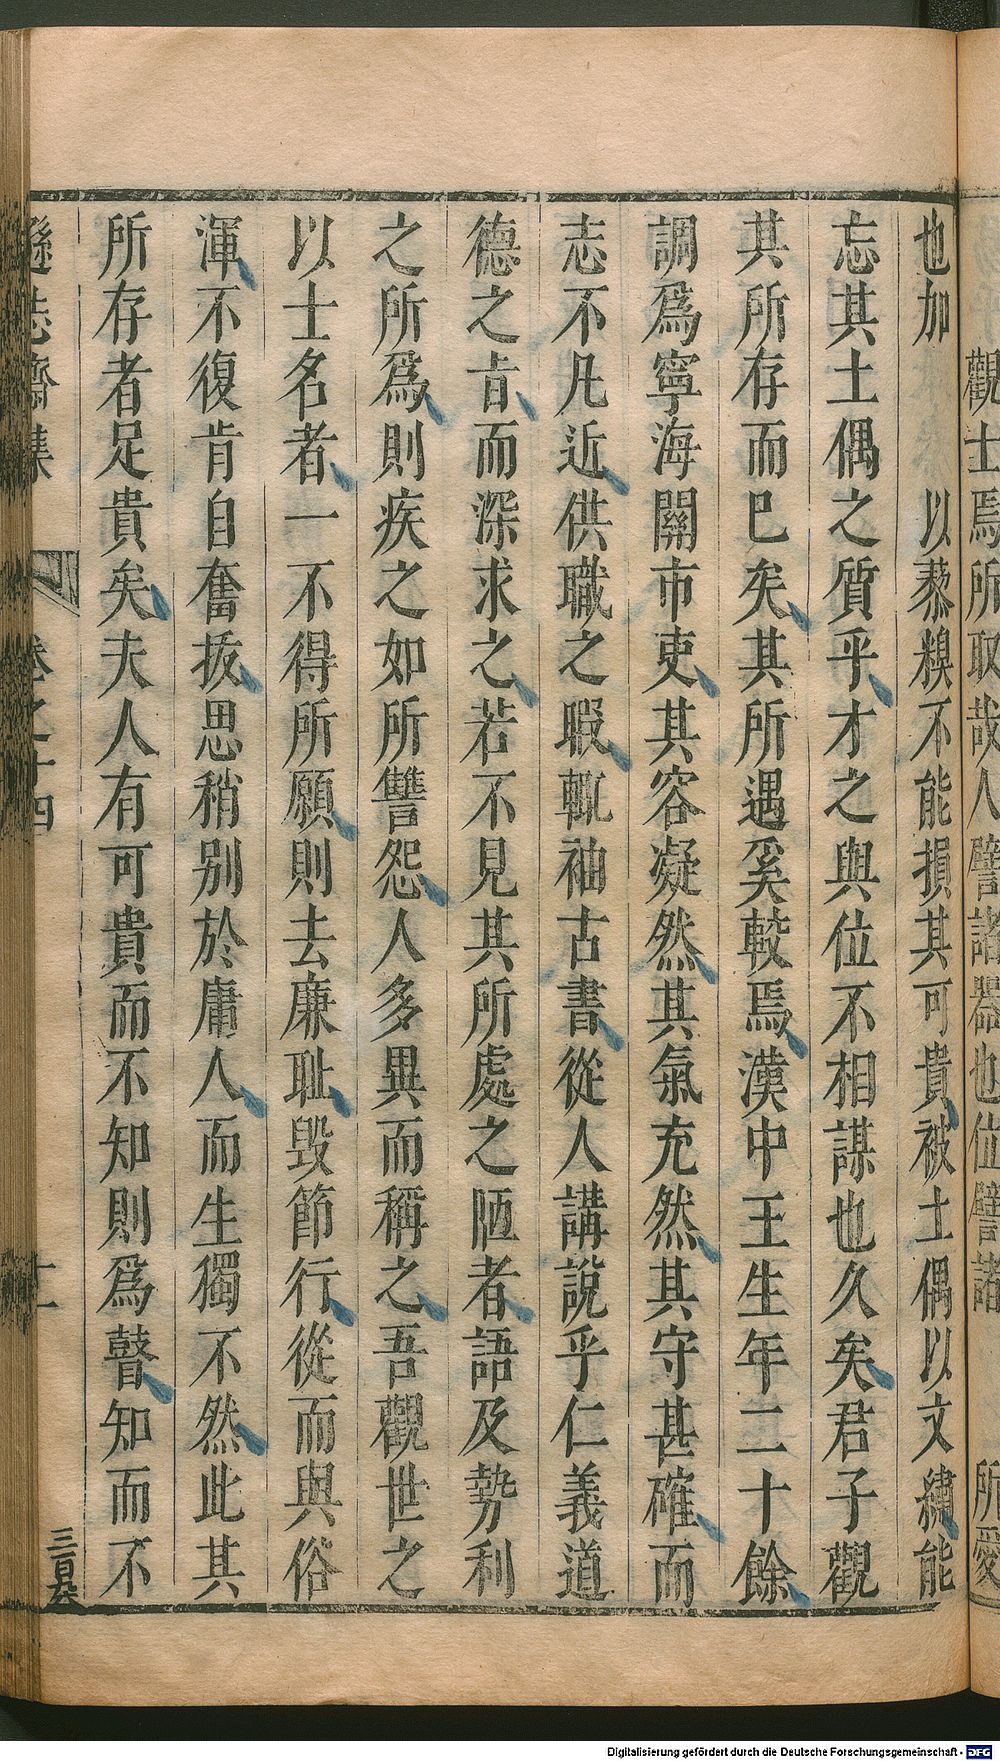 觀士焉所取哉人譬諸器也位譬諸
所愛
也加
以藜糗不能損其可貴被土偶以文繡能
忘其土偶之質乎才之與位不相謀也久矣君子觀
其所存而巳矣其所遇奚較焉漢中王生年二十餘
調爲寧海關市吏其容凝然其氣充然其守甚確而
志不凡近供職之暇輒袖古書從人講說乎仁義道
德之㫖而深求之若不見其所處之陋者語及勢利
之所爲則疾之如所讐怨人多異而稱之吾觀世之
以士名者一不得所願則去廉耻毀節行從而與俗
渾不復肯自奮拔思稍别於庸人而生獨不然此其
所存者足貴矣夫人有可貴而不知則爲瞽知而不
遜志齋集
卷之十四
十一
Digitalisierung gefördert durch die Deutsche Forschungsgemeinschaft - DFG